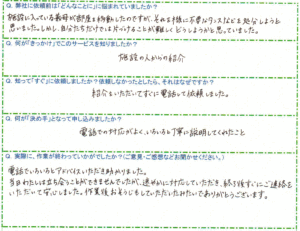 Q. 弊社に依頼前は「どんなこと」に」悩まれていましたか？
施設に入っている義母が部屋を移動したのですが、それを機に不要なタンスなどを処分しようと
思いました。しかし、自分たちだけでは片づけることが難しくどうしようかと思っていました。
Q. 何が「きっかけ」でこのサービスを知りましたか？
施設の人からの紹介
Q. 知って「すぐ」に依頼しましたか？依頼しなかったとしたら、それはなぜですか？
紹介をいただいてすぐに電話して依頼しました。
Q. 何が「決め手」となって申し込みましたか？
電話での対応がよく、いろいろと丁寧に説明してくれたこと
Q. 実際に、作業が終わっていかがでしたか？(ご意見・ご感想などお聞かせください。)
電話でいろいろとアドバイスいただき助かりました。
当日わたしは立ち会うことができませんでしたが、速やかに対応していただき、終了後すぐにご連絡を
いただいて安心しました。作業後おそうじもしていただいたみたいでありがとうございます。